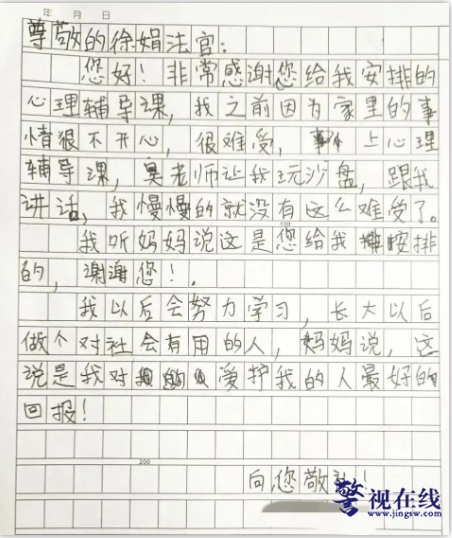 年 月 日
尊敬的徐娟法官：
您好！非常感谢您给我安排的
心理辅导课，我之前因为家里的事
情很不开心，很难受，上心理
辅导课，吴老师让我玩沙盘，跟我
讲话，我慢慢的就没有这么难受了。
我听妈妈说这是您给我安排
的，谢谢您！.
我以后会努力学习，长大以后
做个对社会有用的人，妈妈说，这
说是我对爱护我的人最好的
回报！
200
向您敬礼！
警视在线
www.jingsw.com